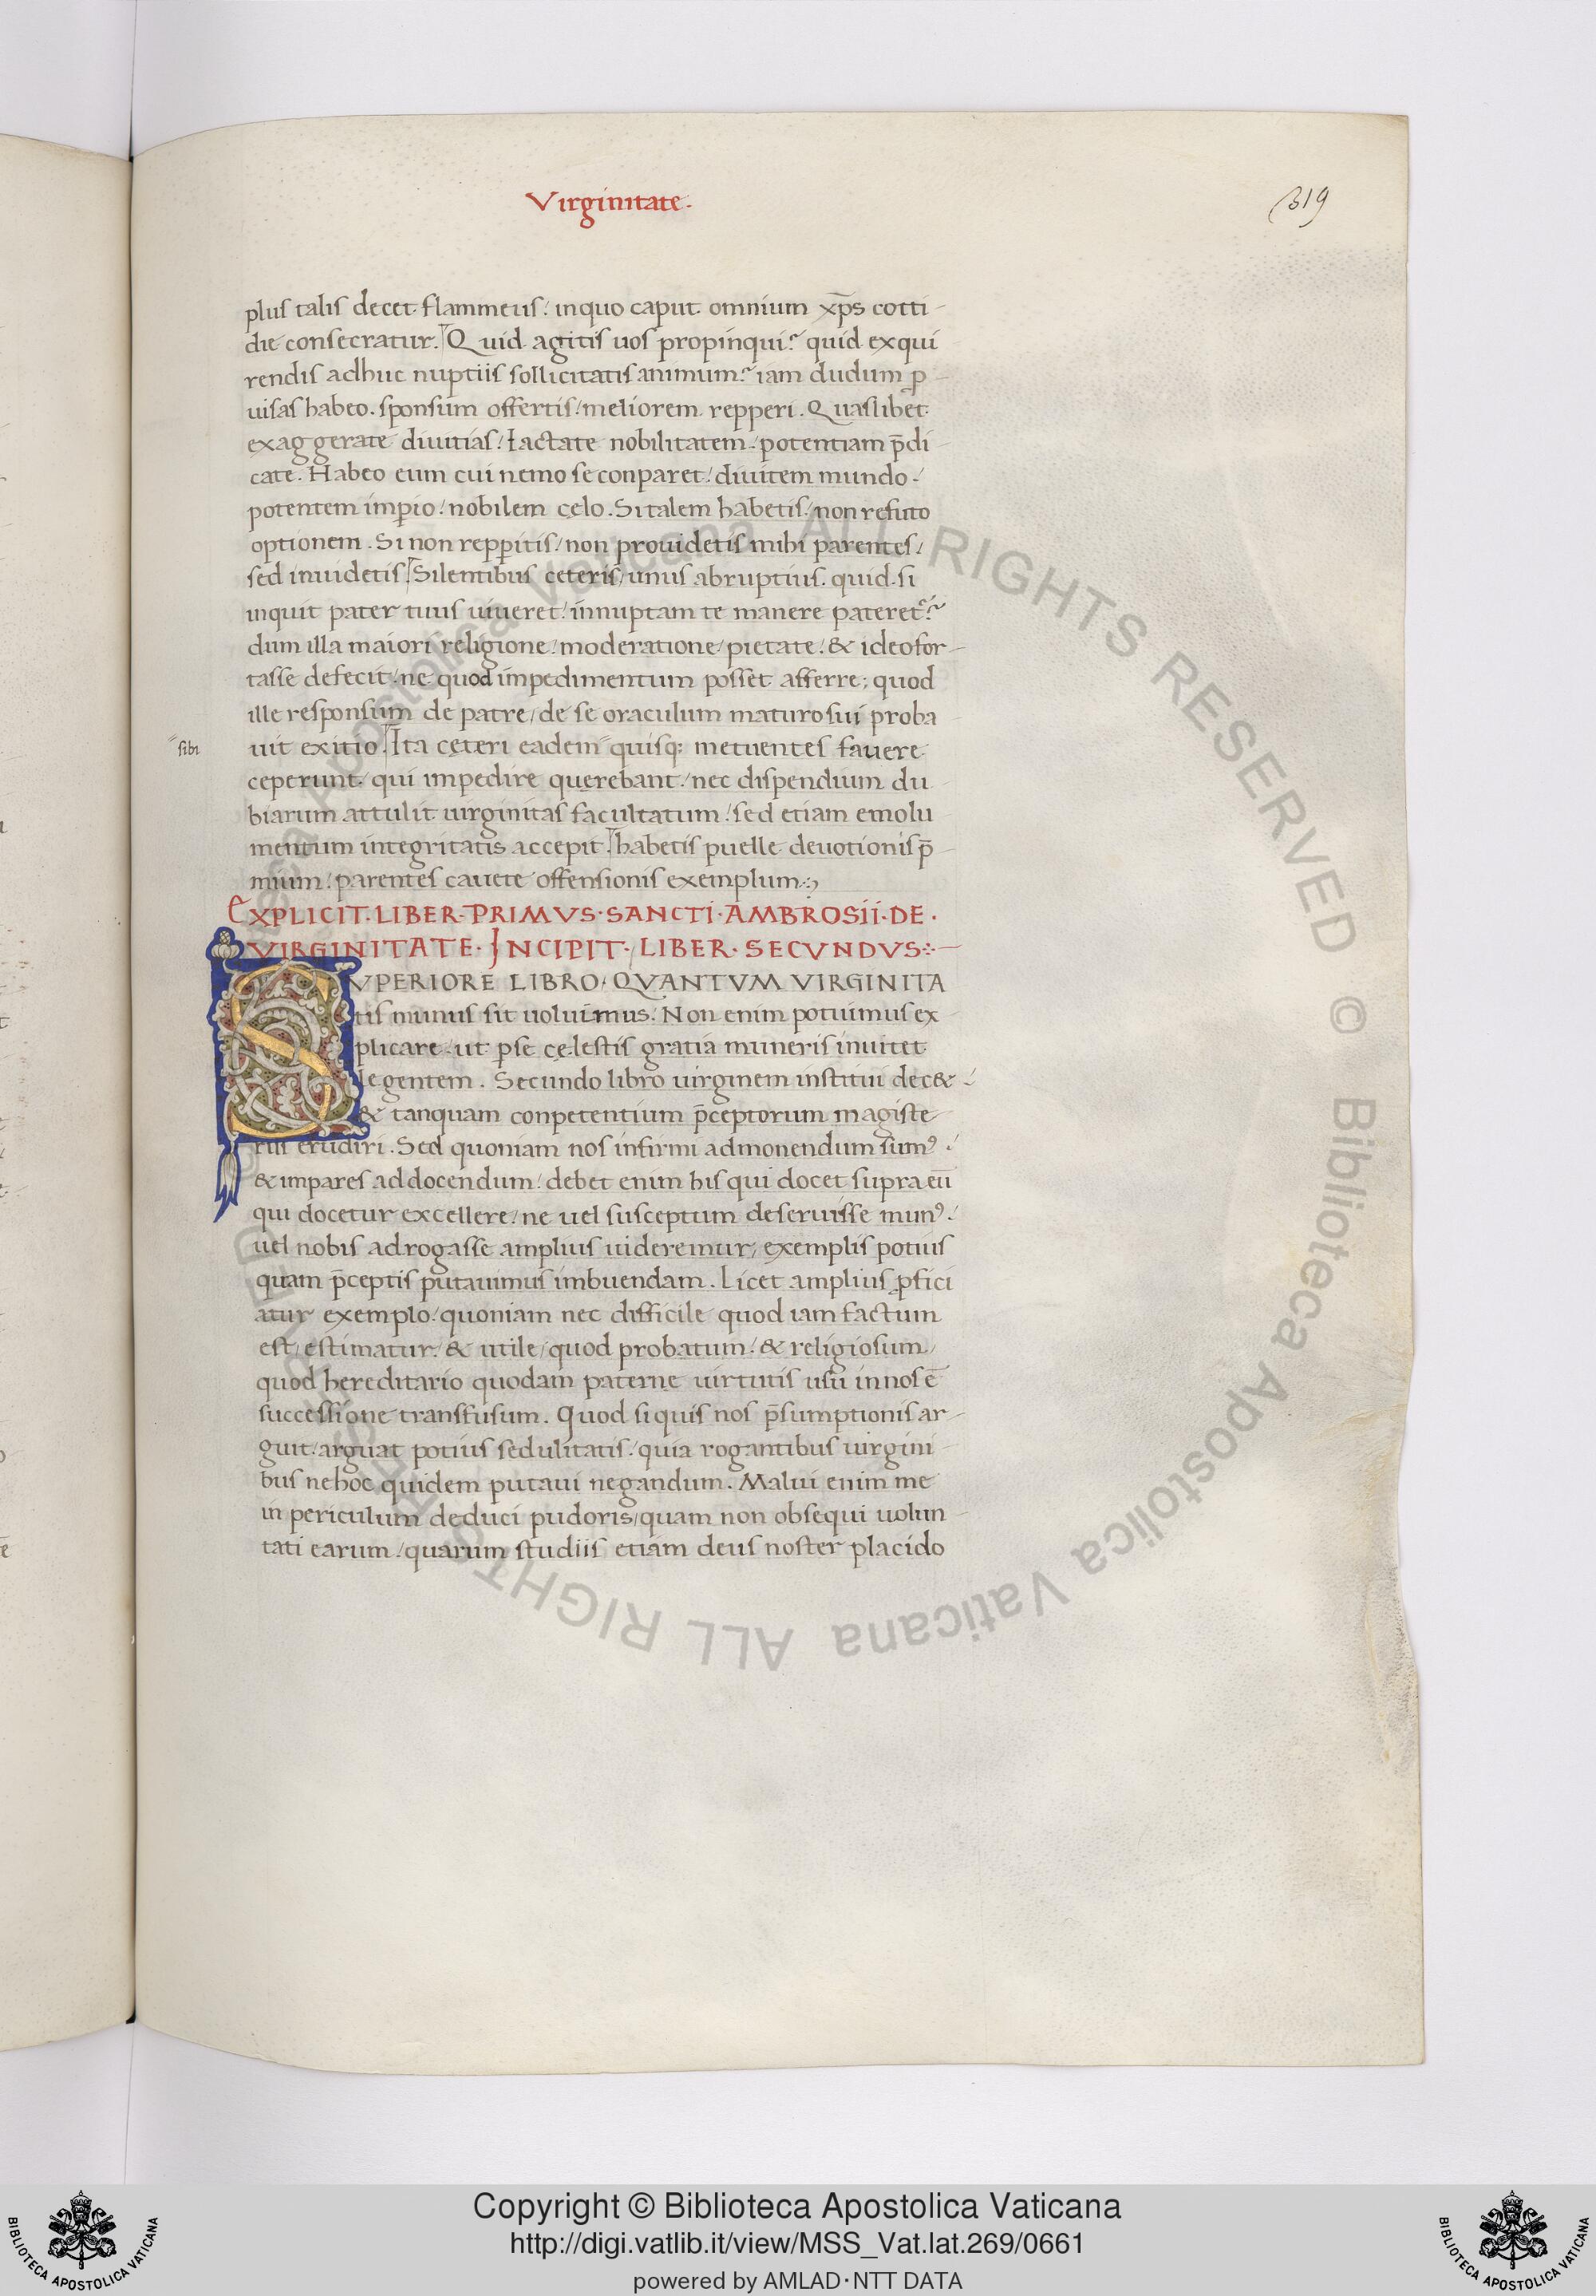 Virginitate.
319
plus talis decet flammeus/ inquo caput omnium xp̄s cotti-
die consecratur. Quid agitis uos propinqui? quid exqui
rendis adhuc nuptiis sollicitatis animum? iam dudum ꝓ-
uisas habeo. sponsum offertis/ meliorem repperi. Quaslibet
exaggerate diuitias/ Iactate nobilitatem/ potentiam p̄di-
cate. Habeo eum cui nemo se conparet/ diuitem mundo/
potentem imꝑio/ nobilem cęlo. Si talem habetis/ non refuto
optionem. Si non repꝑitis/ non prouidetis mihi parentes/
sed inuidetis. Silentibus ceteris/ unus abruptius. quid si
inquit pater tuus uiueret/ innuptam te manere pateret᷑?
dum illa maiori religione/ moderatione/ pietate/ & ideo for-
tasse defecit/ ne quod impedimentum posset afferre; quod
ille responsum de patre/ de se oraculum maturo sui proba-
sibi
uit exitio. Ita cęteri eadem quisq; metuentes fauere
ceperunt/ qui impedire querebant/ nec dispendium du
biarum attulit uirginitas facultatum/ sed etiam emolu
mentum integritatis accepit. habetis puelle deuotionis p̄-
mium/ parentes cauete offensionis exemplum:,
EXPLICIT·LIBER·PRIMVS·SANCTI·AMBROSII·DE·
VIRGINITATE· INCIPIT· LIBER· SECVNDVS:-
SVPERIORE LIBRO· QVANTVM VIRGINITA
tis munus sit uoluimus. Non enim potuimus ex-
plicare/ ut ꝑse cęlestis gratia muneris inuitet
legentem. Secundo libro uirginem institui dec&/
& tanquam conpetentium p̄ceptorum magiste-
riis erudiri. Sed quoniam nos infirmi admonendum sumꝰ/
& impares ad docendum/ debet enim his qui docet supra eū
qui docetur excellere/ ne uel susceptum deseruisse munꝰ/
uel nobis adrogasse amplius uideremur/ exemplis potius
quam p̄ceptis putauimus imbuendam. Licet amplius ꝓfici
atur exemplo/ quoniam nec difficile quod iam factum
est/ estimatur/ & utile/ quod probatum/ & religiosum/
quod hereditario quodam paterne uirtutis usu in nos ē
successione transfusum. Quod si quis nos p̄sumptionis ar-
guit/ arguat potius sedulitatis/ quia rogantibus uirgini-
bus ne hoc quidem putaui negandum. Malui enim me
in periculum deduci pudoris/ quam non obsequi uolun-
tati earum/ quarum studiis etiam deus noster placido
Copyright © Biblioteca Apostolica Vaticana
http://digi.vatlib.it/view/MSS_Vat.lat.269/0661
powered by AMLAD·NTT DATA